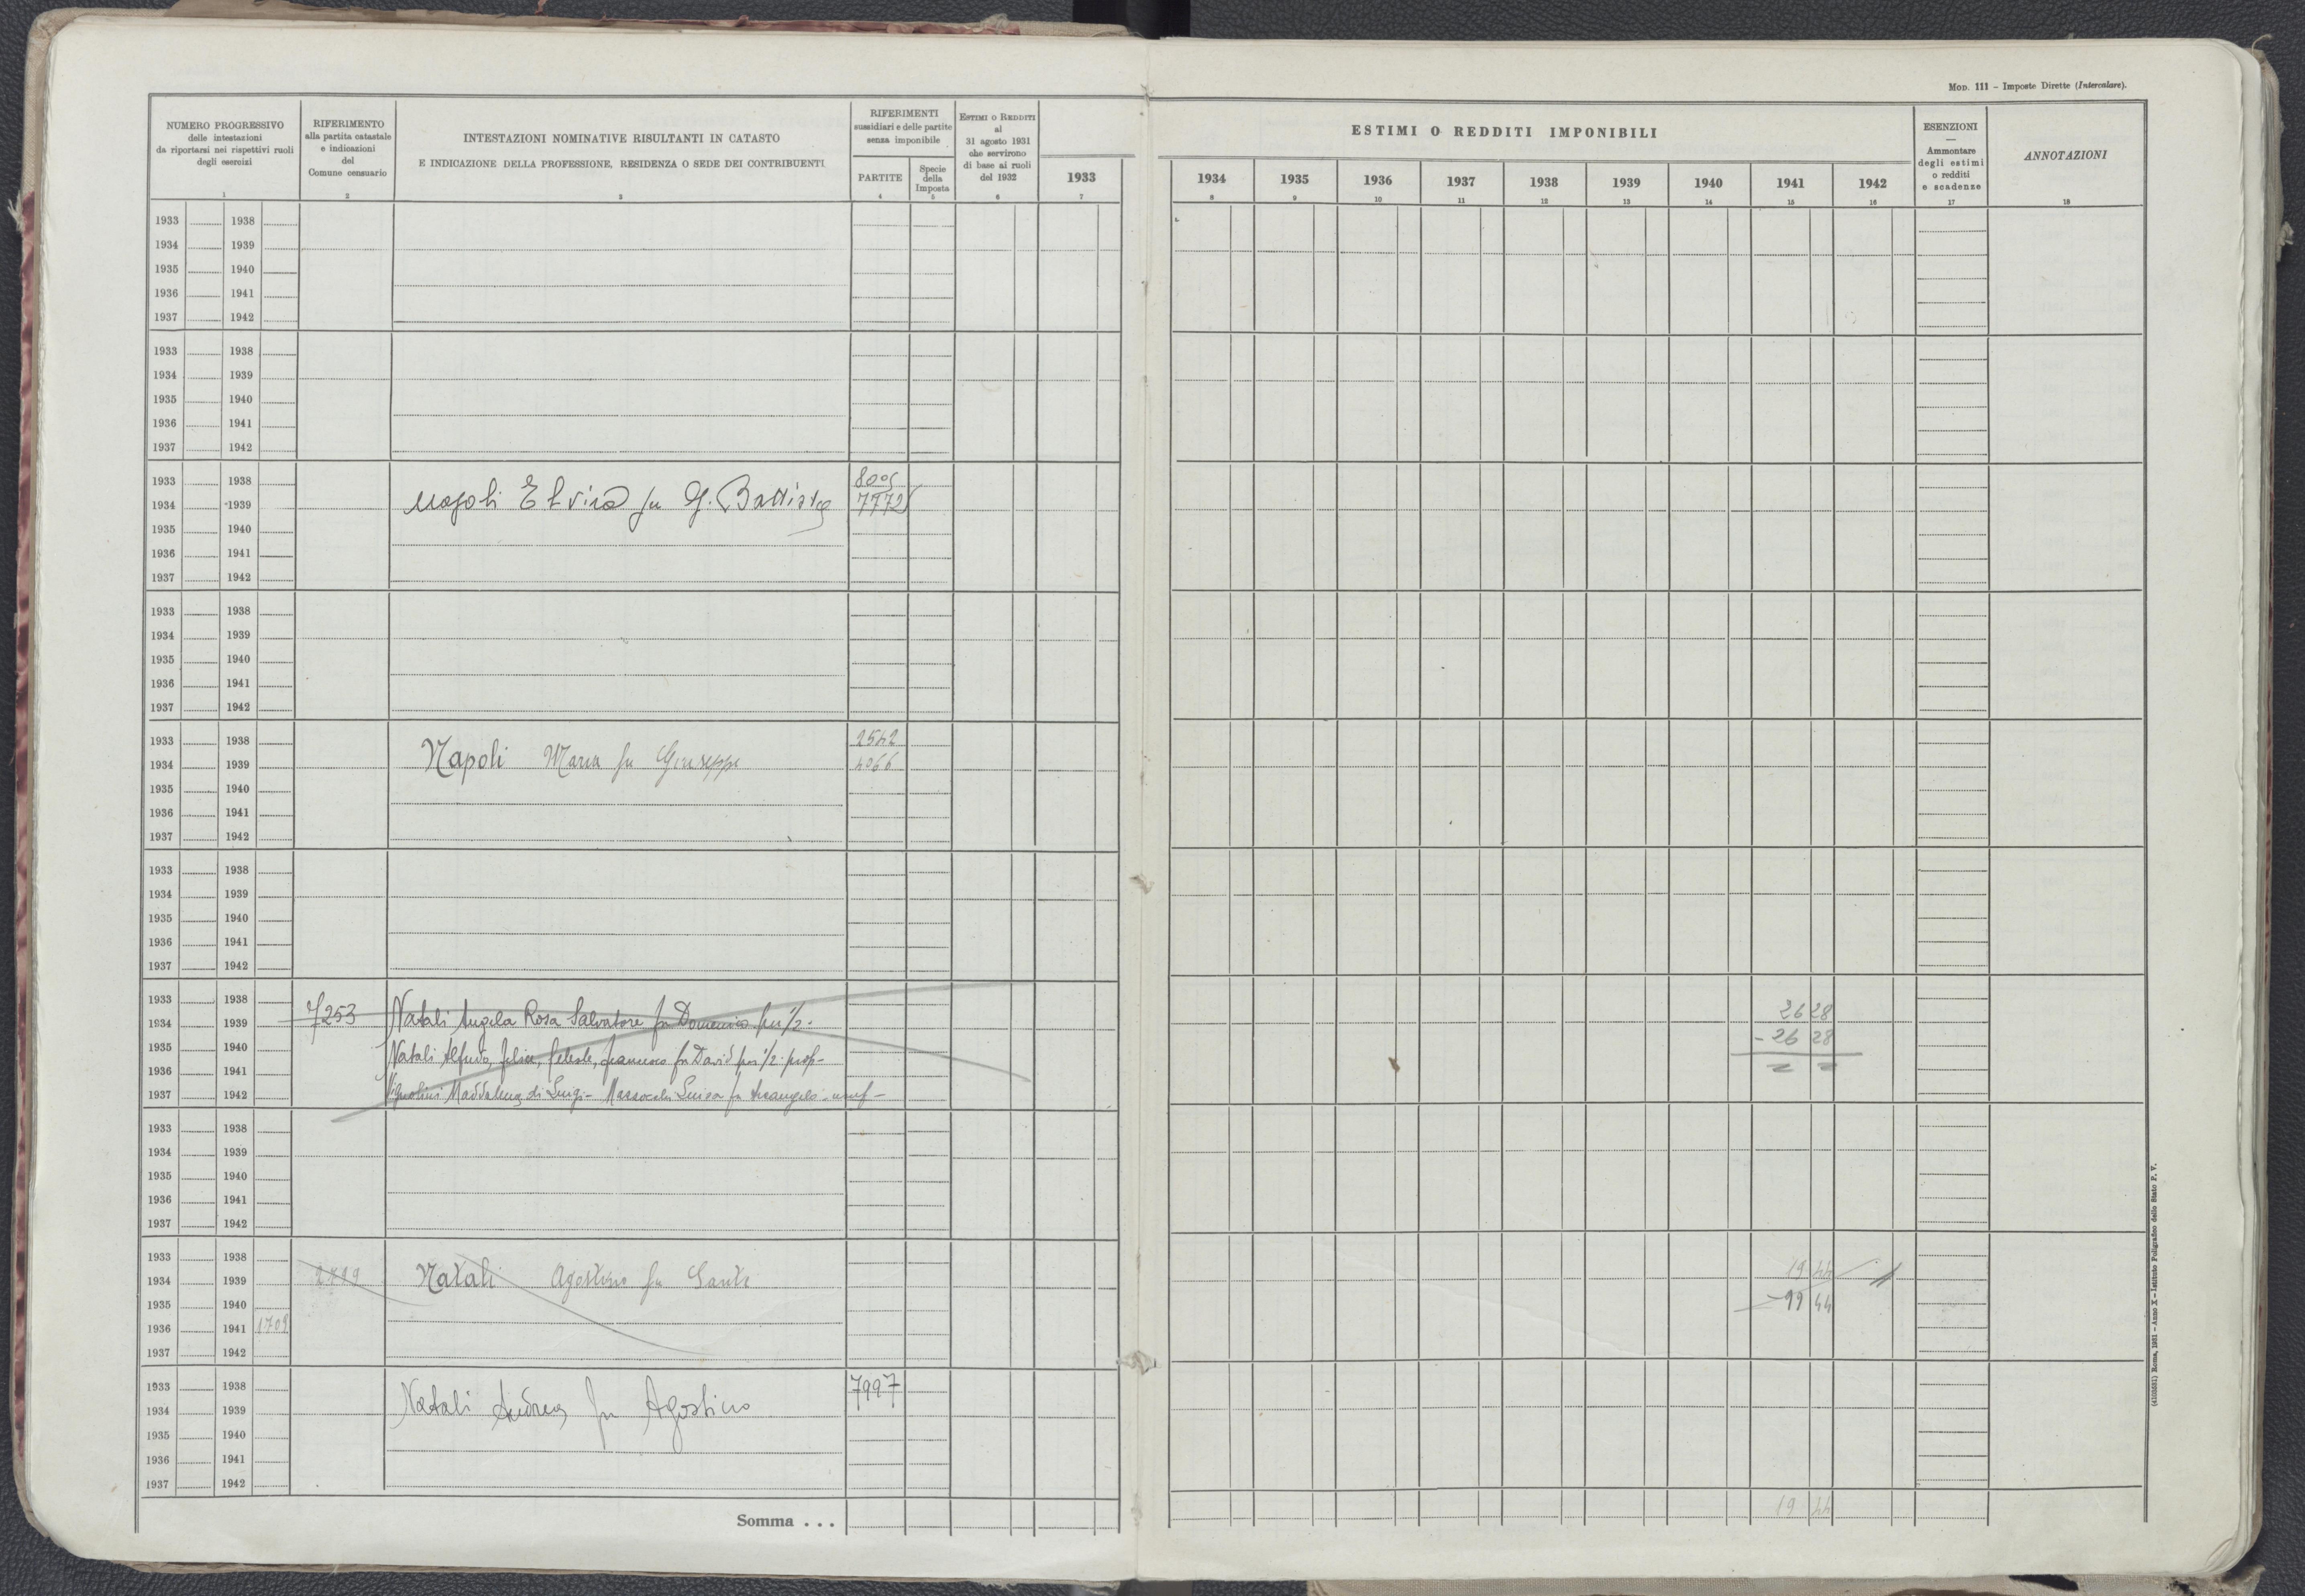 Mod. 111 – Imposte Dirette (Intercalare).
NUMERO PROGRESSIVO
delle intestazioni
da riportarsi nei rispettivi ruoli
degli esercizi
1
RIFERIMENTO
alla partita catastale
e indicazioni
del
Comune censuario
2
INTESTAZIONI NOMINATIVE RISULTANTI IN CATASTO
E INDICAZIONE DELLA PROFESSIONE, RESIDENZA O SEDE DEI CONTRIBUENTI
3
RIFERIMENTI
sussidiari e delle partite
senza imponibile
PARTITE
4
Specie
della
Imposta
5
Estimi o Redditi
al
31 agosto 1931
che servirono
di base ai ruoli
del 1932
6
1933
7
ESTIMI O REDDITI IMPONIBILI
1934 1935 1936 1937 1938 1939 1940 1941 1942
8 9 10 11 12 13 14 15 16
ESENZIONI
—
Ammontare
degli estimi
o redditi
e scadenze
17
ANNOTAZIONI
18
1933 1938
1934 1939
1935 1940
1936 1941
1937 1942
1933 1938
1934 1939
1935 1940
1936 1941
1937 1942
1933 1938 8005
1934 1939 Napoli Elvira fu G. Battista 7772
1935 1940
1936 1941
1937 1942
1933 1938
1934 1939
1935 1940
1936 1941
1937 1942
1933 1938 2542
1934 1939 Napoli Maria fu Giuseppe 4066
1935 1940
1936 1941
1937 1942
1933 1938
1934 1939
1935 1940
1936 1941
1937 1942
1933 1938
1934 1939 7253 Natali Angela Rosa Salvatore fu Domenico per 1/2 - 26 28
1935 1940 Natali Alfredo, Felice, Celeste, Francesco fu David per 1/2 - prop - - 26 28
1936 1941 = =
1937 1942 Maddalena di Luigi - Luisa fu Arcangelo - usuf -
1933 1938
1934 1939
1935 1940
1936 1941
1937 1942
1933 1938
1934 1939 Natali Agostino fu Sante 19 44
1935 1940 - 19 44
1936 1941 1709
1937 1942
1933 1938 7997
1934 1939 Natali Andrea fu Agostino
1935 1940
1936 1941
1937 1942
Somma . . . 19 44
(4103581) Roma, 1931 – Anno X – Istituto Poligrafico dello Stato P. V.